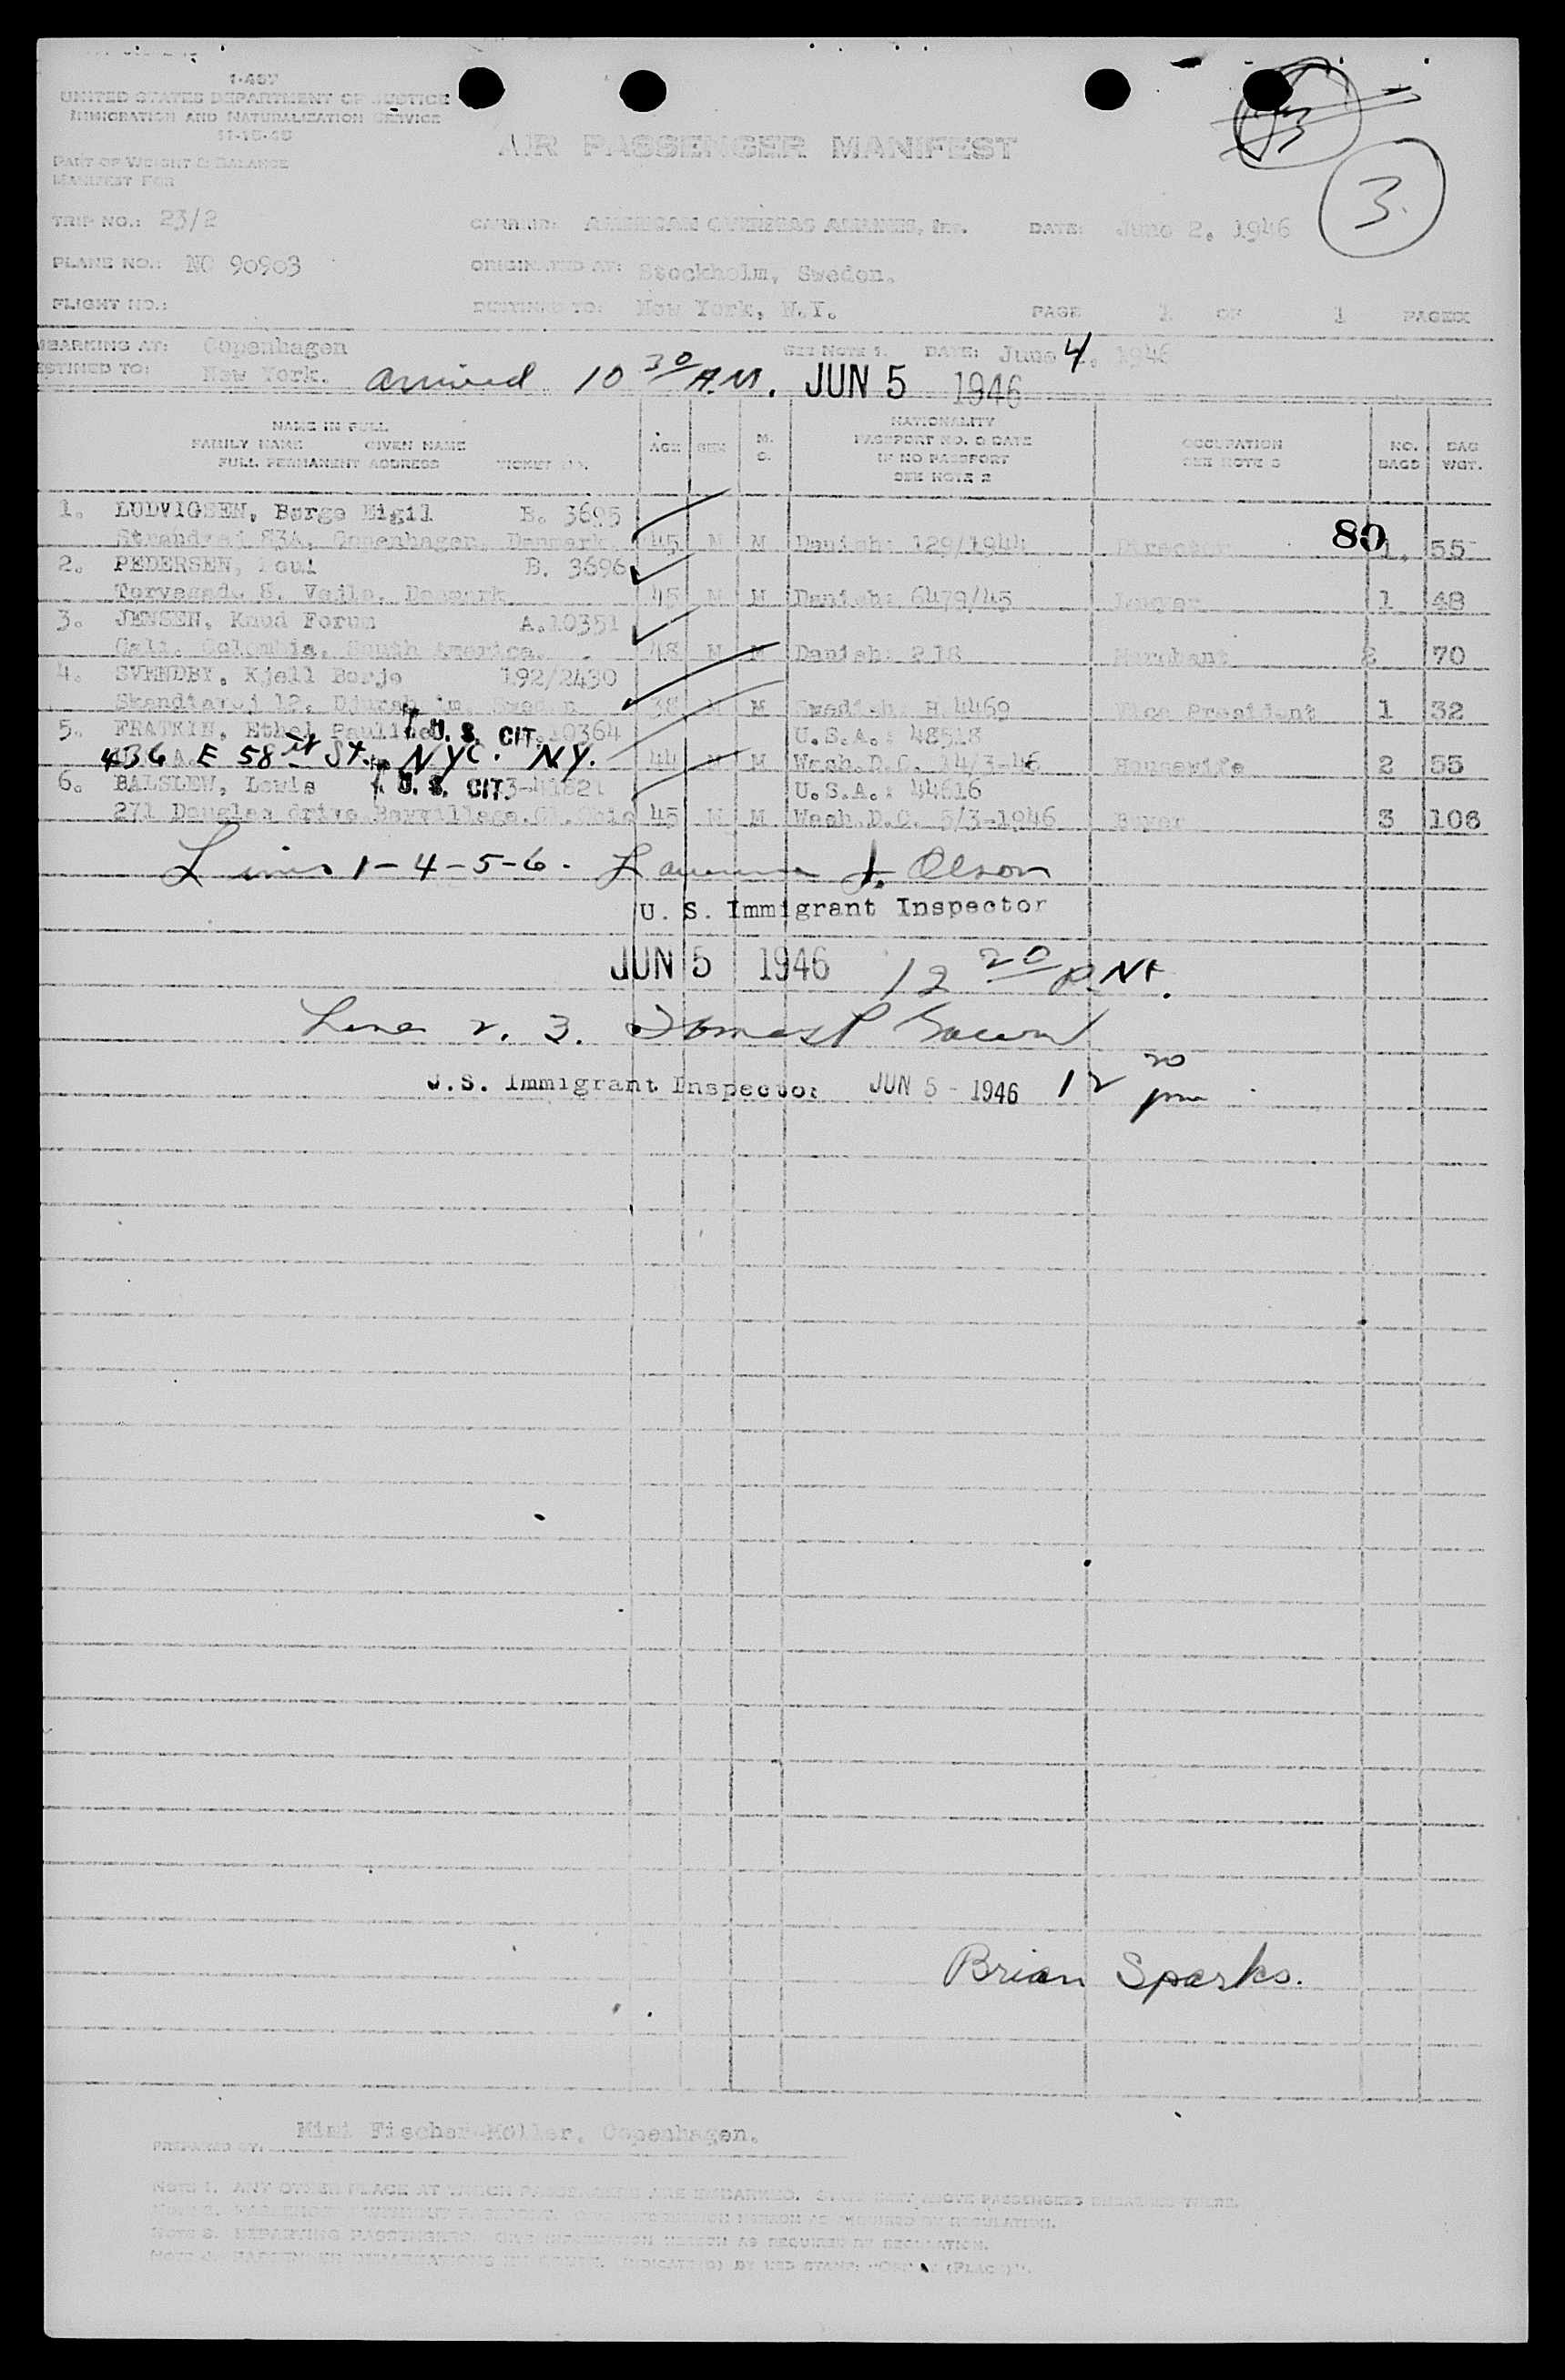 I-467
UNITED STATES DEPARTMENT OF JUSTICE
IMMIGRATION AND NATURALIZATION SERVICE
11-15-45
AIR PASSENGER MANIFEST
PART OF WEIGHT & BALANCE
MANIFEST FOR
3.
TRIP NO.: 23/2 CARRIER: AMERICAN OVERSEAS AIRLINES, INC. DATE: June 2. 1946
PLANE NO.: NC 90903 ORIGINATED AT: Stockholm, Sweden.
FLIGHT NO.: DESTINED TO: New York, N.Y. PAGE 1 OF 1 PAGES
EMBARKING AT: Copenhagen SEE NOTE 1. DATE: June 4. 1946
DESTINED TO: New York. Arrived 10 30 A.M. JUN 5 1946
NAME IN FULL
FAMILY NAME GIVEN NAME
FULL PERMANENT ADDRESS TICKET NO.
AGE SEX M. S.
NATIONALITY
PASSPORT NO. & DATE
IF NO PASSPORT
SEE NOTE 2
OCCUPATION
SEE NOTE 3
NO. BAGS
BAG WGT.
1. LUDVIGSEN, Børge Eigil B. 3695
Strandvej 83A, Copenhagen, Denmark. 45 M M Danish: 129/1944 Director 80 1. 55
2. PEDERSEN, Poul B. 3696
Torvegade 8. Vejle. Denmark 45 M M Danish: 6479/45 Lawyer 1 48
3. JENSEN, Knud Forum A.10351
Cali. Colombia. South America. 48 M M Danish 218 Merchant 2 70
4. SVENDBY, Kjell Borje 192/2430
Skandiavej 12. Sweden 38 M M Swedish. H.4469 Vice President 1 32
5. FRATKIN, Ethel Pauline U. S. CIT. 10364 U.S.A.: 48518
436 E 58 St. NYC. N.Y. 44 M Wash.D.C. 14/3-46 Housewife 2 55
6. BALSLEW, Lewis U. S. CIT. U.S.A.: 44616
271 Douglas drive 45 M M Wash.D.C. 5/3-1946 Buyer 3 106
Lines 1-4-5-6. Lawrence J. Olson
U. S. Immigrant Inspector
JUN 5 1946 12 20 P.M.
Lines 2. 3.
U.S. Immigrant Inspector JUN 5 - 1946 12 20 pm
Brian Sparks.
PREPARED BY: Mimi Fischer-Møller, Copenhagen.
NOTE 1. ANY OTHER PLACE AT WHICH PASSENGERS ARE EMBARKED.